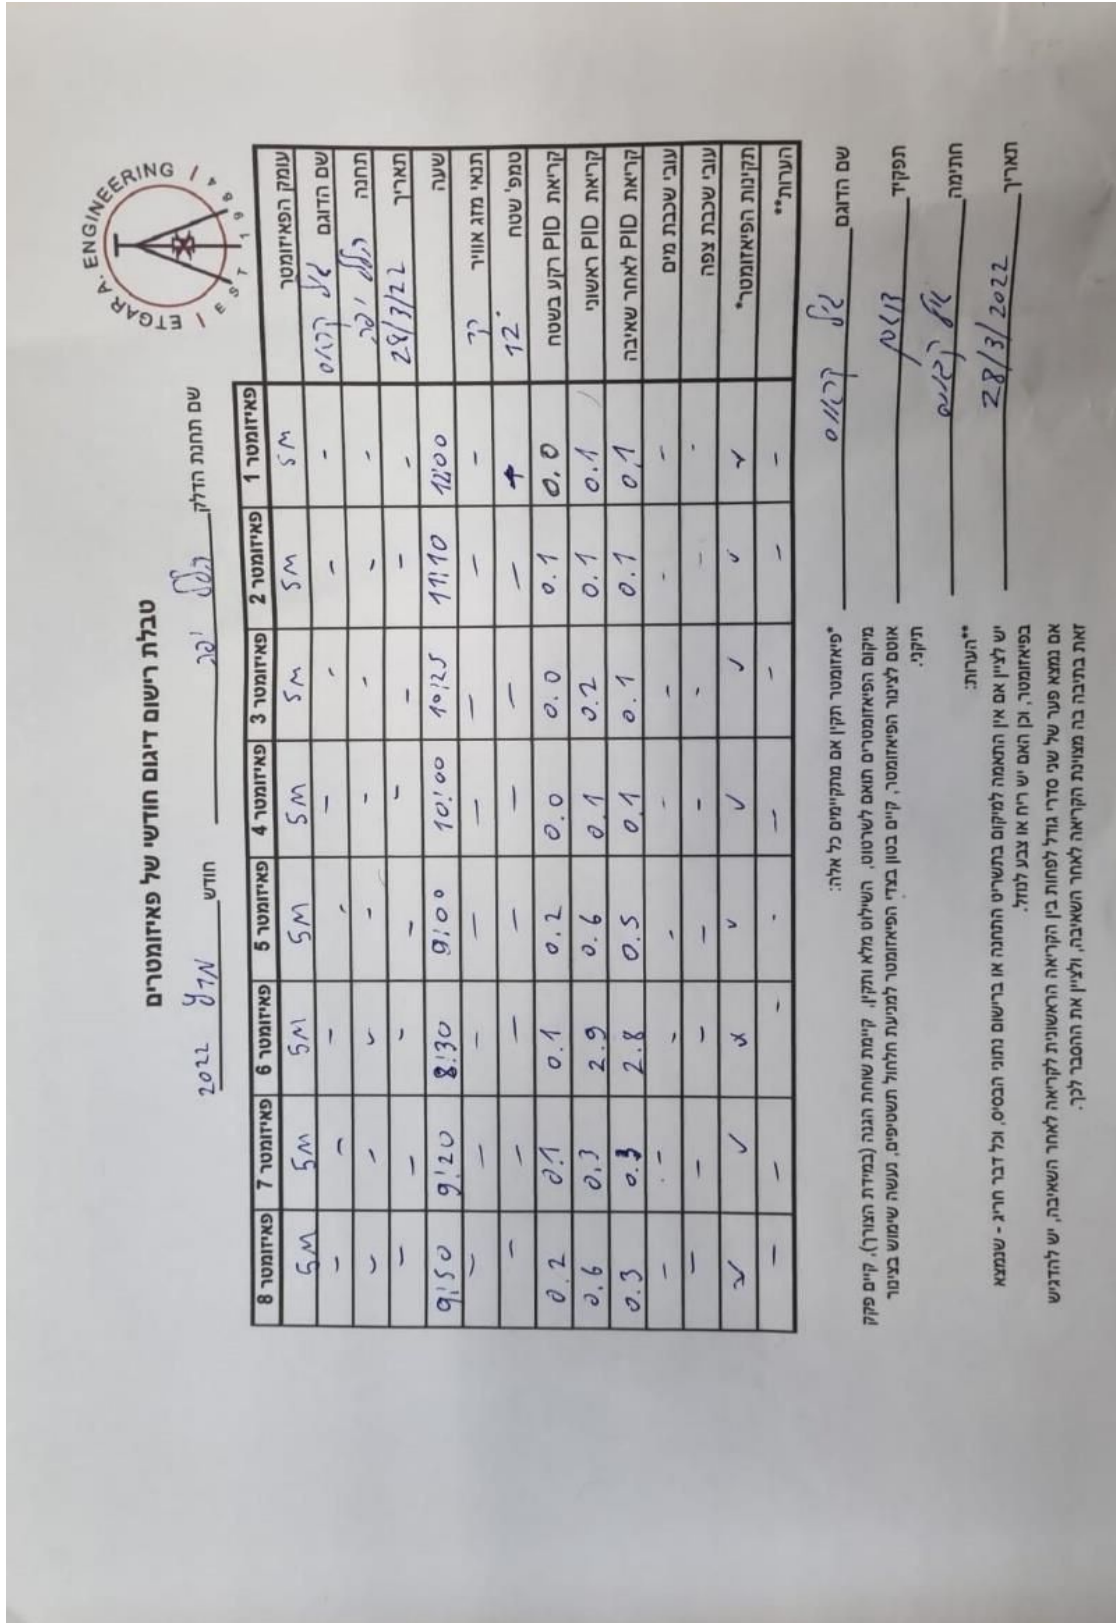 ETGAR A. ENGINEERING | EST 1984 |
טבלת רישום דיגום חודשי של פאיזומטרים
שם תחנת הדלק הלל יפה חודש מרץ 2022
פאיזומטר 1 פאיזומטר 2 פאיזומטר 3 פאיזומטר 4 פאיזומטר 5 פאיזומטר 6 פאיזומטר 7 פאיזומטר 8
עומק הפאיזומטר 5M 5M 5M 5M 5M 5M 5M 5M
שם הדוגם גיל - - - - - - - -
תחנה הלל יפה - - - - - - - -
תאריך 28/3/22 - - - - - - - -
שעה 12:00 11:10 10:25 10:00 9:00 8:30 9:20 9:50
תנאי מזג אוויר - - - - - - - -
טמפ' שטח 12° - - - - - - -
קריאת PID רקע בשטח 0.0 0.1 0.0 0.0 0.2 0.1 0.1 0.2
קריאת PID ראשוני 0.1 0.1 0.2 0.1 0.6 2.9 0.3 0.6
קריאת PID לאחר שאיבה 0.1 0.1 0.1 0.1 0.5 2.8 0.3 0.3
עובי שכבת מים - - - - - - - -
עובי שכבת צפה - - - - - - - -
תקינות הפיאזומטר* ✓ ✓ ✓ ✓ ✓ x ✓ ✓
הערות** - - - - - - - -
שם הדוגם גיל
תפקיד דוגם
חתימה
תאריך 28/3/2022
*פיאזומטר תקין אם מתקיימים כל אלה:
מיקום הפיאזומטרים תואם לשרטוט, השילוט מלא ותקין, קיימת שוחת הגנה (במידת הצורך), קיים פקק
אוטם לצינור הפיאזומטר, קיים בטון בצדי הפיאזומטר למניעת חלחול תשטיפים, נעשה שימוש בצינור
תיקני.
**הערות:
יש לציין אם אין התאמה למיקום בתשריט התחנה או ברישום נתוני הבסיס, וכל דבר חריג - שנמצא
בפיאזומטר, וכן האם יש ריח או צבע לנוזל.
אם נמצא פער של שני סדרי גודל לפחות בין הקריאה הראשונית לקריאה לאחר השאיבה, יש להדגיש
זאת בתיבה בה מצוינת הקריאה לאחר השאיבה, ולציין את ההסבר לכך.